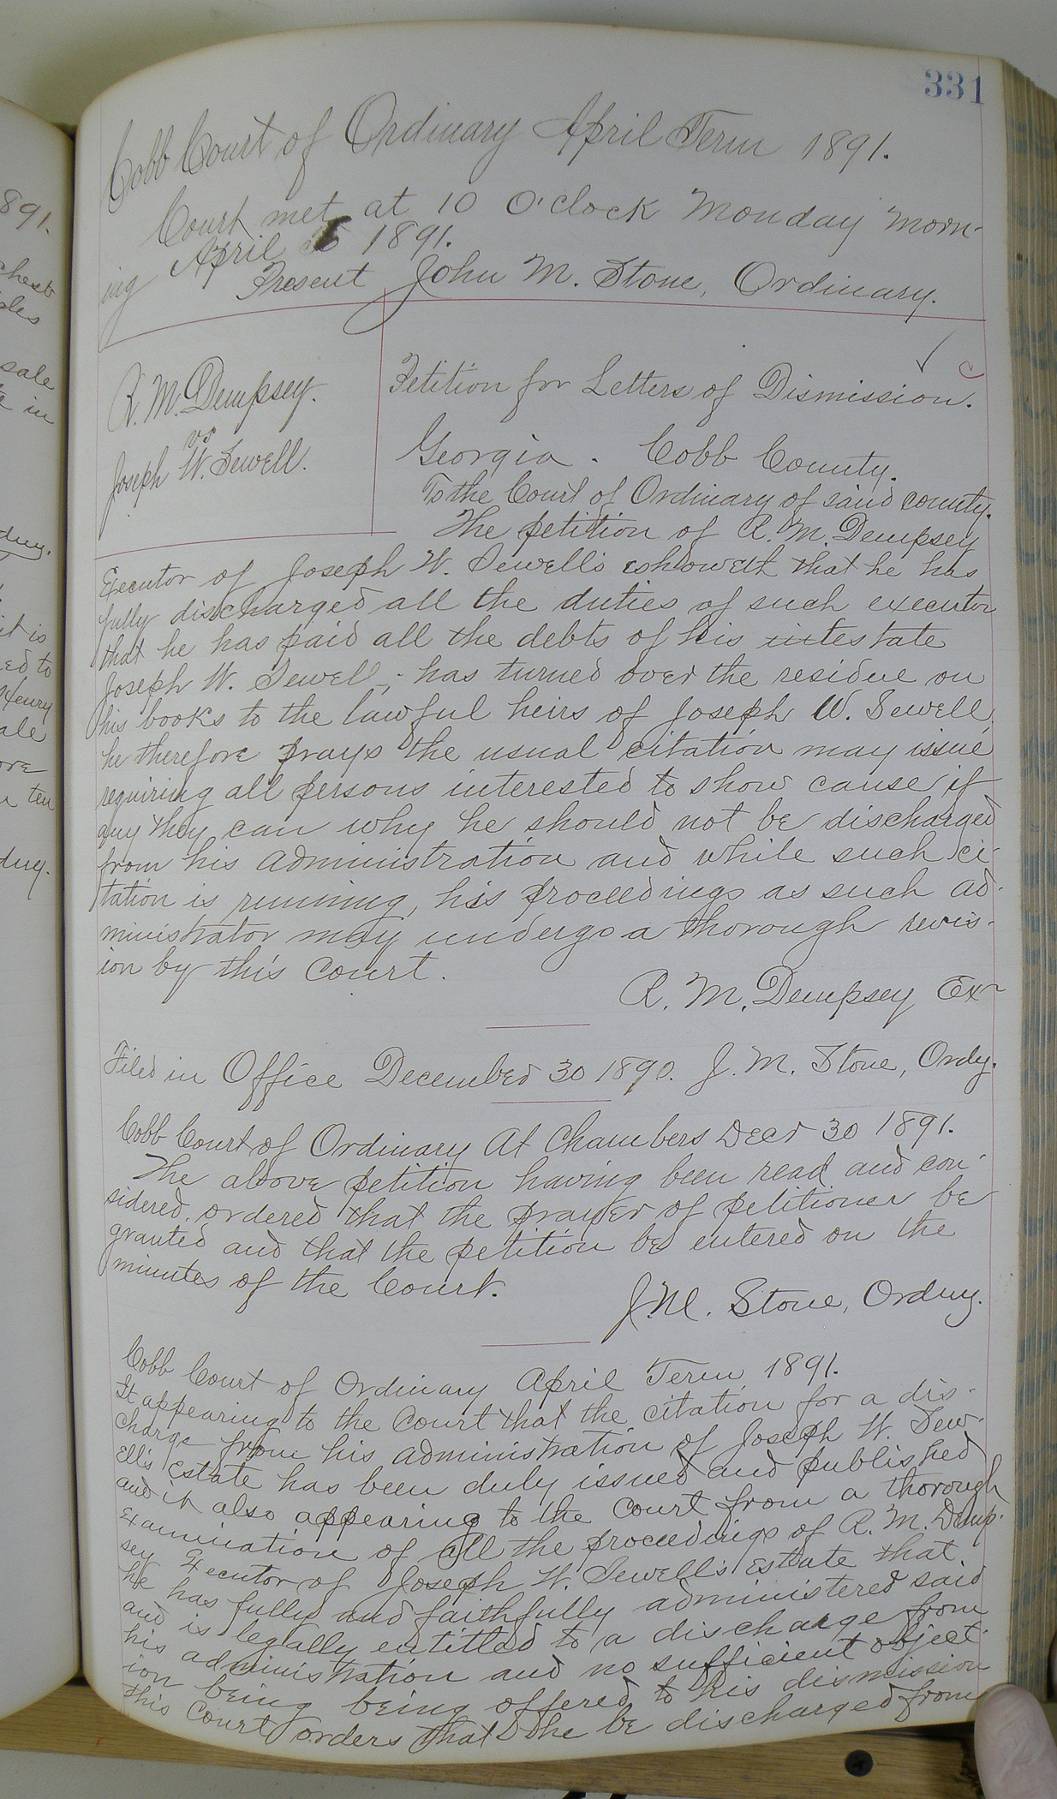 331
Cobb Court of Ordinary April Term 1891.
Court met at 10 O'clock Monday morn-
ing April 6 1891.
Present John M. Stone, Ordinary.
R. M. Dempsey.
vs
Joseph W. Sewell.
Petition for Letters of Dismission.
Georgia. Cobb County.
To the Court of Ordinary of said county.
The petition of R. M. Dempsey
Executor of Joseph W. Sewells eshoweth that he has
fully discharged all the duties of such executor
that he has paid all the debts of his intestate
Joseph W. Sewell, has turned over the residue on
his books to the lawful heirs of Joseph W. Sewell
he therefore prays the usual citation may issue
requiring all persons interested to show cause if
any they can why he should not be discharged
from his administration and while such ci-
tation is running, his proceedings as such ad-
ministrator may undergo a thorough revis-
ion by this court.
R. M. Dempsey Exr
Filed in Office December 30 1890. J. M. Stone, Ordy.
Cobb Court of Ordinary At Chambers Decr 30 1891.
The above petition having been read and con-
sidered, ordered that the prayer of petitioner be
granted and that the petition be entered on the
minutes of the Court.
J. M. Stone, Ordny.
Cobb Court of Ordinary April Term 1891.
It appearing to the Court that the citation for a dis-
charge from his administration of Joseph W. Sew-
ell's Estate has been duly issued and published
and it also appearing to the Court from a thorough
Examination of all the proceedings of R. M. Demp-
sey Executor of Joseph W. Sewell's Estate that
he has fully and faithfully administered said
and is legally entitled to a discharge from
his administration and no sufficient object-
ion being being offered to his dismission
this Court orders that he be discharged from
891.
chest
ples
sale
in
it is
ed to
Henry
ale
ore
ten